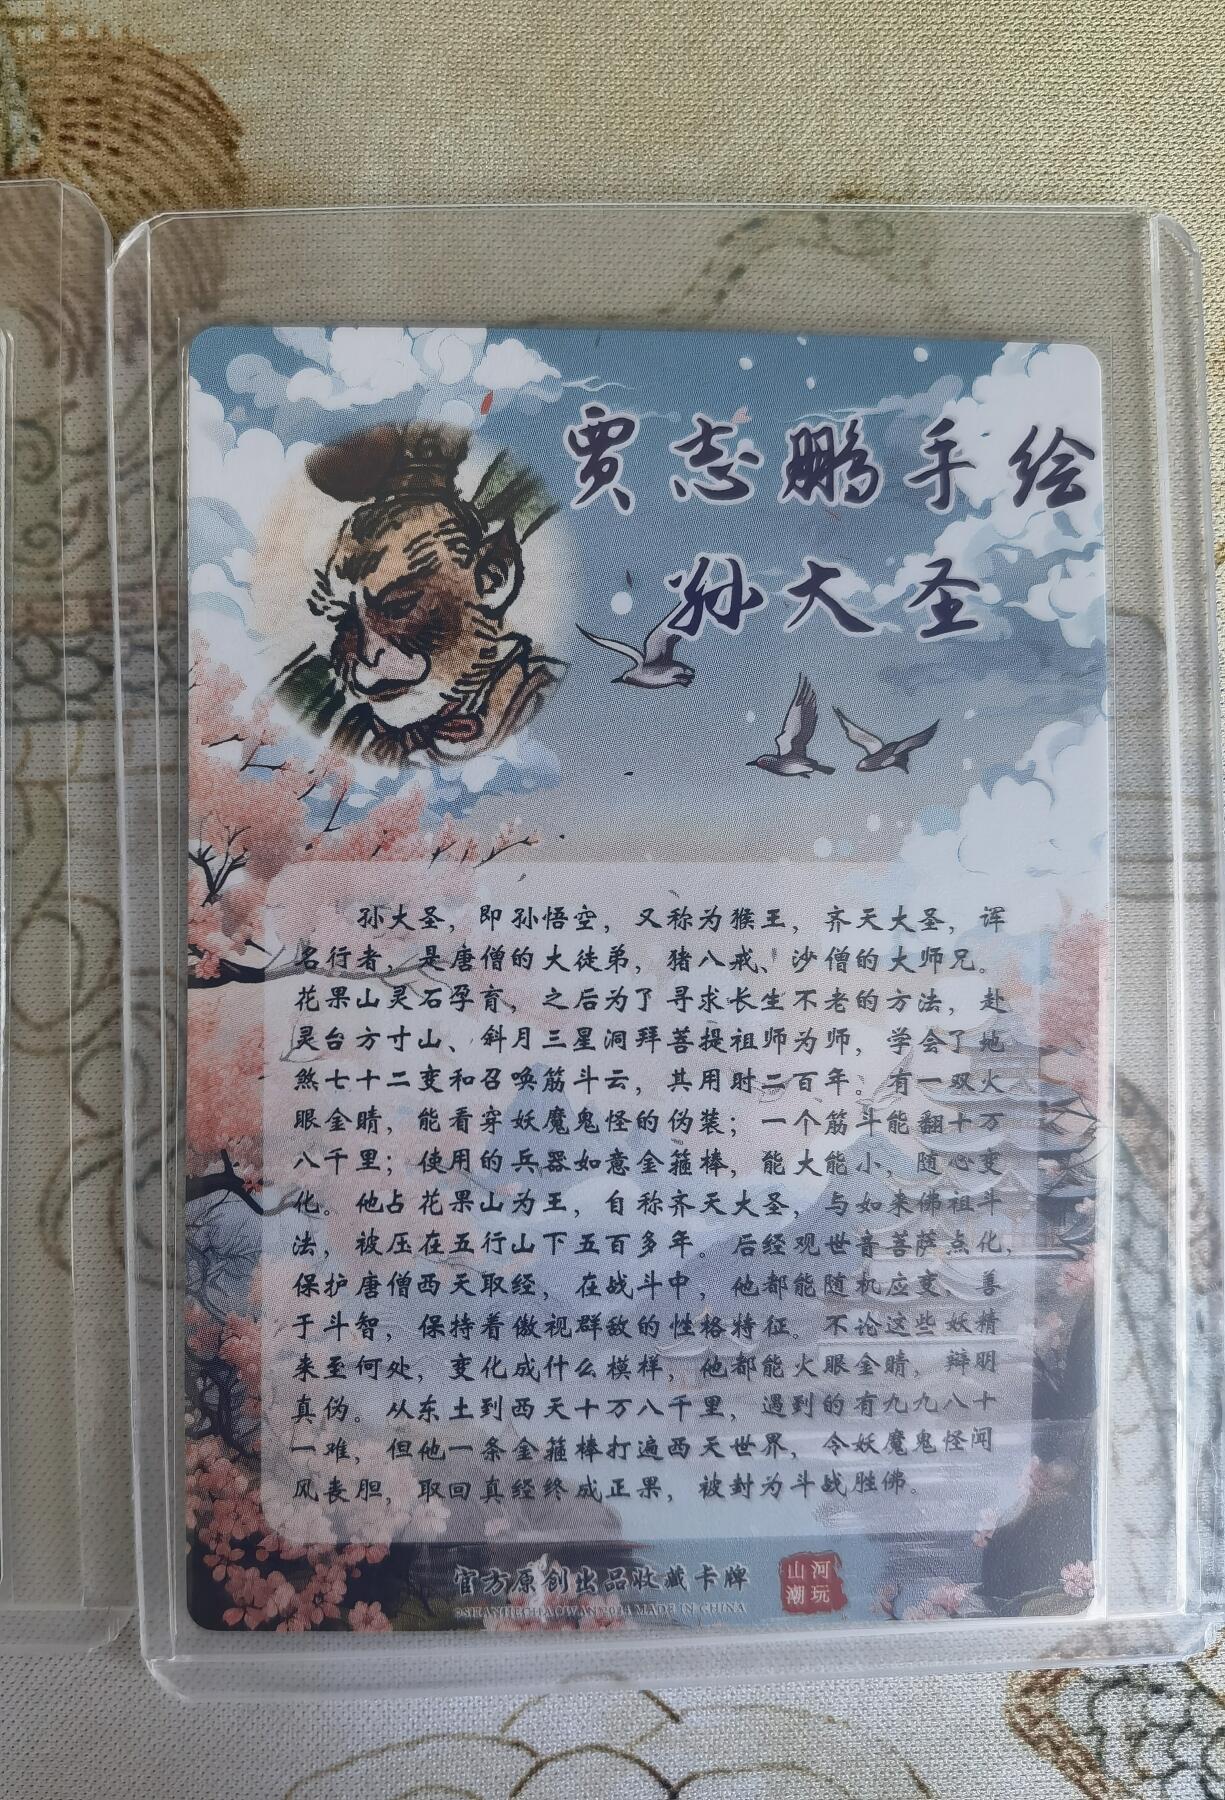 贾志鹏手绘
孙大圣
孙大圣，即孙悟空，又称为猴王，齐天大圣，诨
名行者，是唐僧的大徒弟，猪八戒、沙僧的大师兄。
花果山灵石孕育，之后为了寻求长生不老的方法，赴
灵台方寸山、斜月三星洞拜菩提祖师为师，学会了地
煞七十二变和召唤筋斗云，其用时二百年。有一双火
眼金睛，能看穿妖魔鬼怪的伪装；一个筋斗能翻十万
八千里；使用的兵器如意金箍棒，能大能小，随心变
化。他占花果山为王，自称齐天大圣，与如来佛祖斗
法，被压在五行山下五百多年。后经观世音菩萨点化，
保护唐僧西天取经，在战斗中，他都能随机应变，善
于斗智，保持着傲视群敌的性格特征。不论这些妖精
来至何处，变化成什么模样，他都能火眼金睛，辩明
真伪。从东土到西天十万八千里，遇到的有九九八十
一难，但他一条金箍棒打遍西天世界，令妖魔鬼怪闻
风丧胆，取回真经终成正果，被封为斗战胜佛。
官方原创出品收藏卡牌
山河
潮玩
MADE IN CHINA